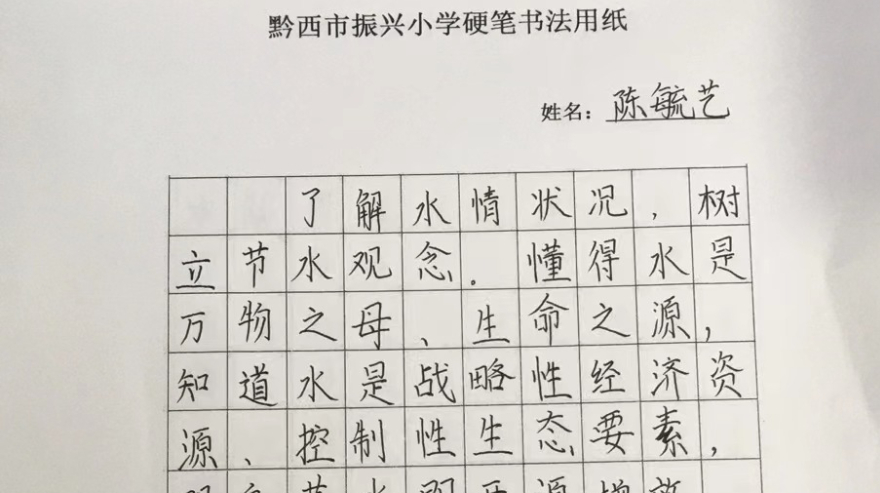 黔西市振兴小学硬笔书法用纸
姓名：陈毓艺
了解水情状况，树
立节水观念。懂得水是
万物之母、生命之源，
知道水是战略性经济资
源、控制性生态要素，